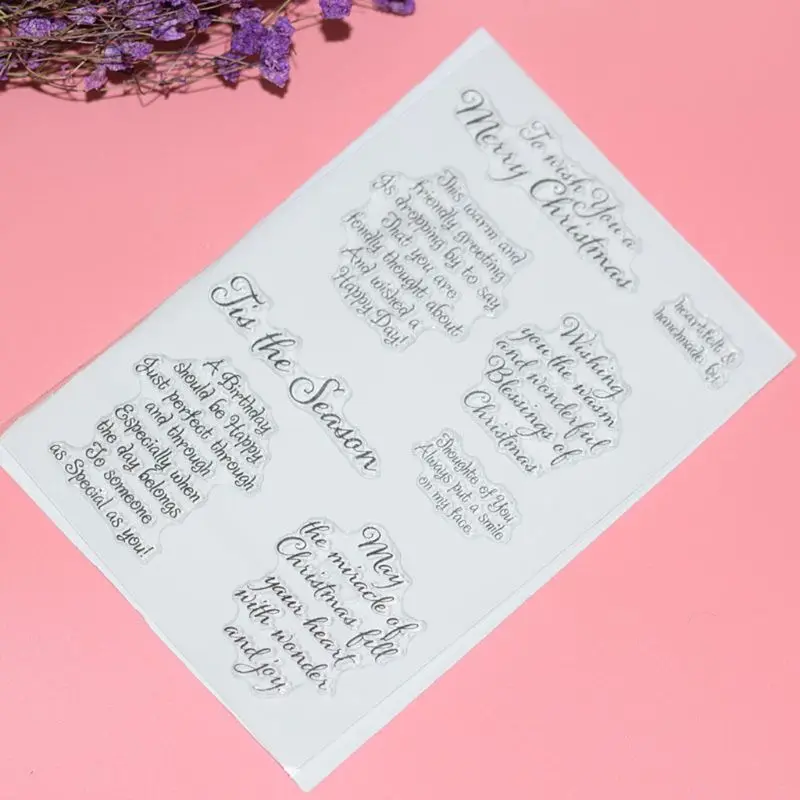 To wish You a
Merry Christmas
This warm and
friendly greeting
Is dropping by to say
That you are
fondly thought about
And wished a
Happy Day!
heartfelt &
handmade by
'Tis the Season
Wishing
you the warm
and wonderful
Blessings of
Christmas
A Birthday
should be Happy
Just perfect through
and through
Especially when
the day belongs
To someone
as Special as you!
Thoughts of You
Always put a smile
on my face.
May
the miracle of
Christmas fill
your heart
with wonder
and joy.